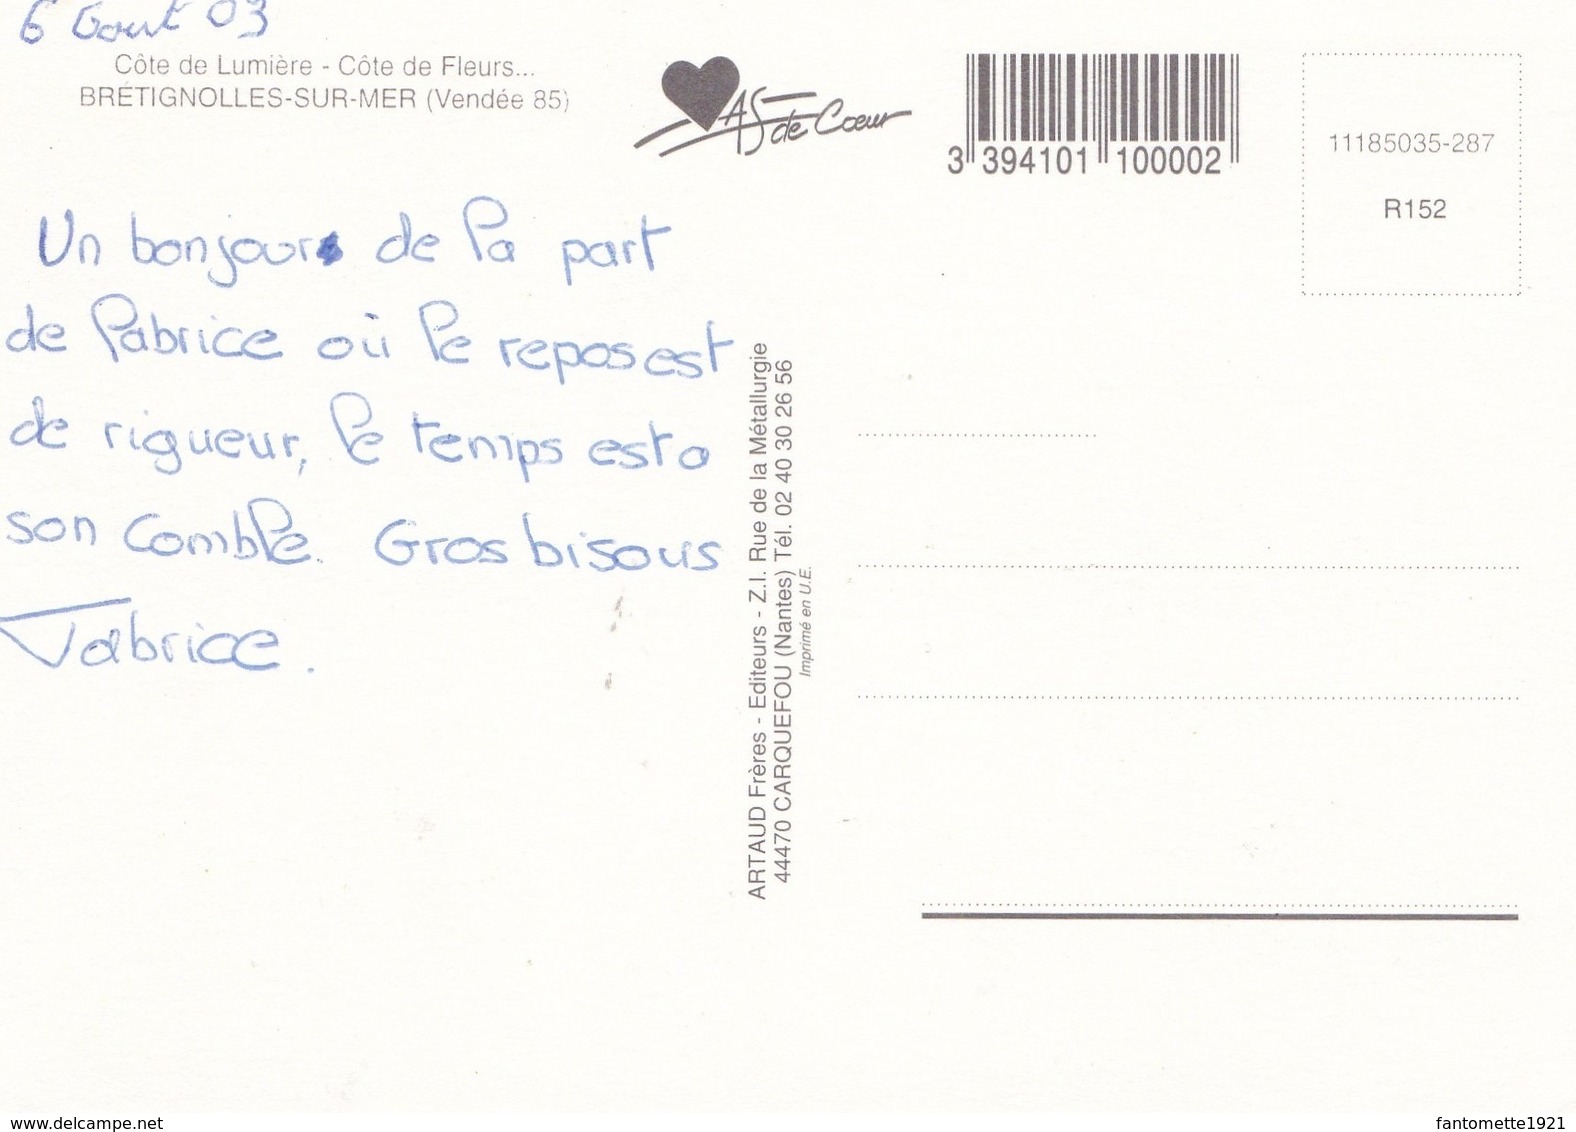 6 Aout 03
Côte de Lumière - Côte de Fleurs...
BRÉTIGNOLLES-SUR-MER (Vendée 85)
AS de Cœur
3 394101 100002
11185035-287
R152
Un bonjour de la part
de Fabrice où le repos est
de rigueur, le temps est a
son comble. Gros bisous
Fabrice.
ARTAUD Frères - Editeurs - Z.I. Rue de la Métallurgie
44470 CARQUEFOU (Nantes) Tél. 02 40 30 26 56
Imprimé en U.E.
www.delcampe.net
fantomette1921